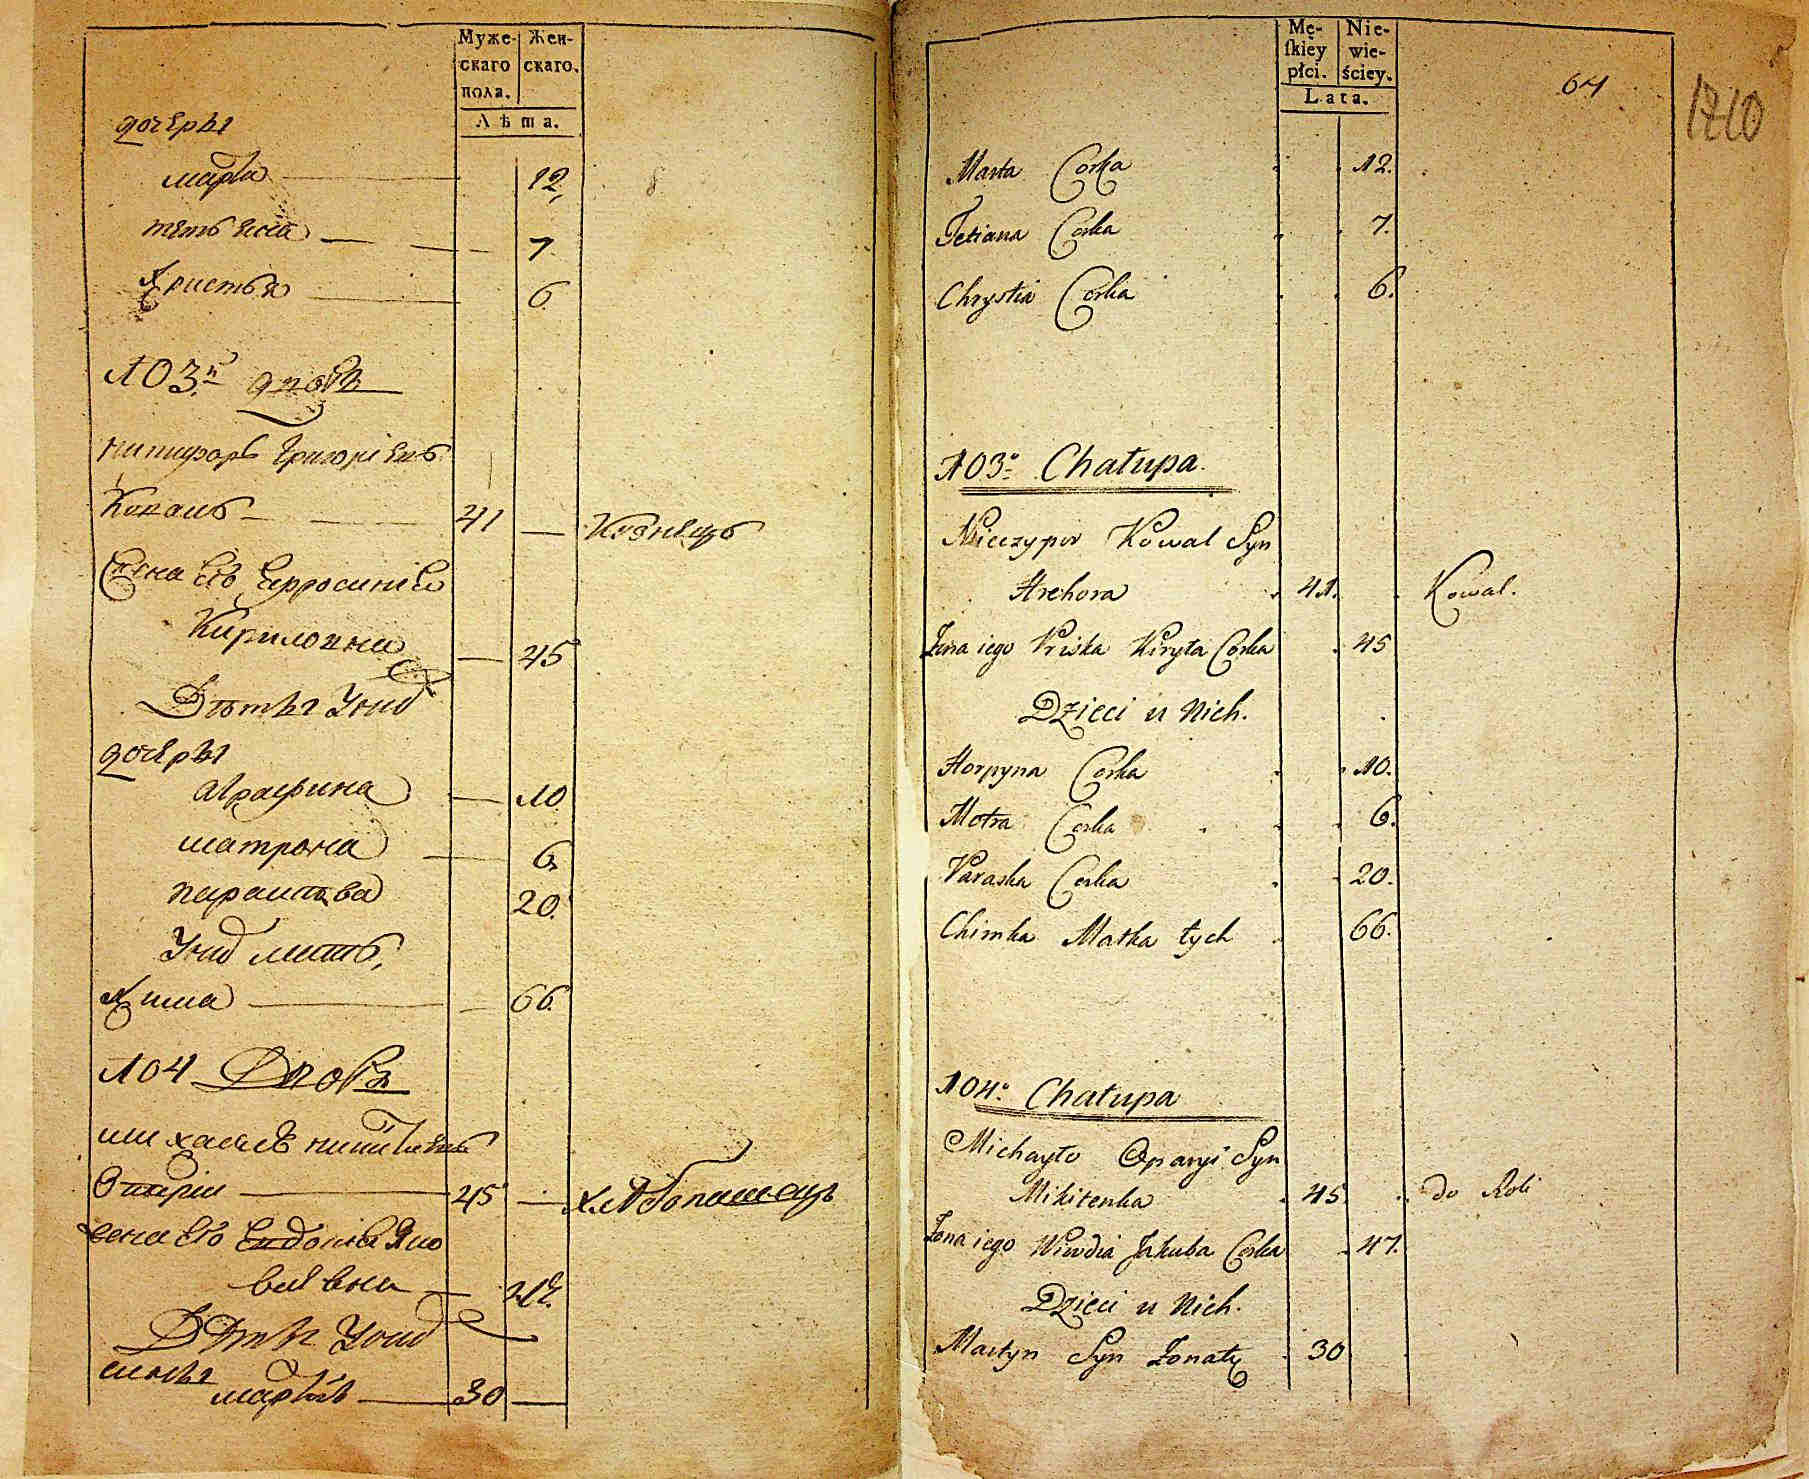 Муже- Жен-
скаго скаго.
пола.
Лѣта.
дочеры
марθа 12.
тетьяна 7.
Христья 6
103.й дворъ
никифоръ Григоріевъ
Коваль 41 Кузнецъ
Жена его Еφросинія
Кирилова 45
Дѣты Унихъ
дочеры
аграфина 10
матрона 6
параскева 20.
Унихъ мать,
Хима 66.
104 Дворъ
михаилъ никитинъ
Опарій 45 хлѣбопашецъ
жена его Евдокія Яко
влевна 47.
Дѣты Унихъ
сыны
мартинъ 30
Mę- Nie-
ſkiey wie-
płci. ściey.
Lata.
64
1210
Marta Corka 12.
Tetiana Corka 7.
Chrystia Corka 6.
103° Chałupa.
Nieczypor Kowal Syn
Hrehora 41. Kowal.
Żona iego Priska Kiryła Corka 45
Dzieci u Nich.
Horpyna Corka 10.
Motra Corka 6.
Paraska Corka 20.
Chimka Matka tych 66.
104° Chałupa
Michayło Oparyi Syn
Mikitenka 45 do Roli
Żona iego Wiwdia Jakuba Corka 47.
Dzieci u Nich.
Martyn Syn Żonaty 30